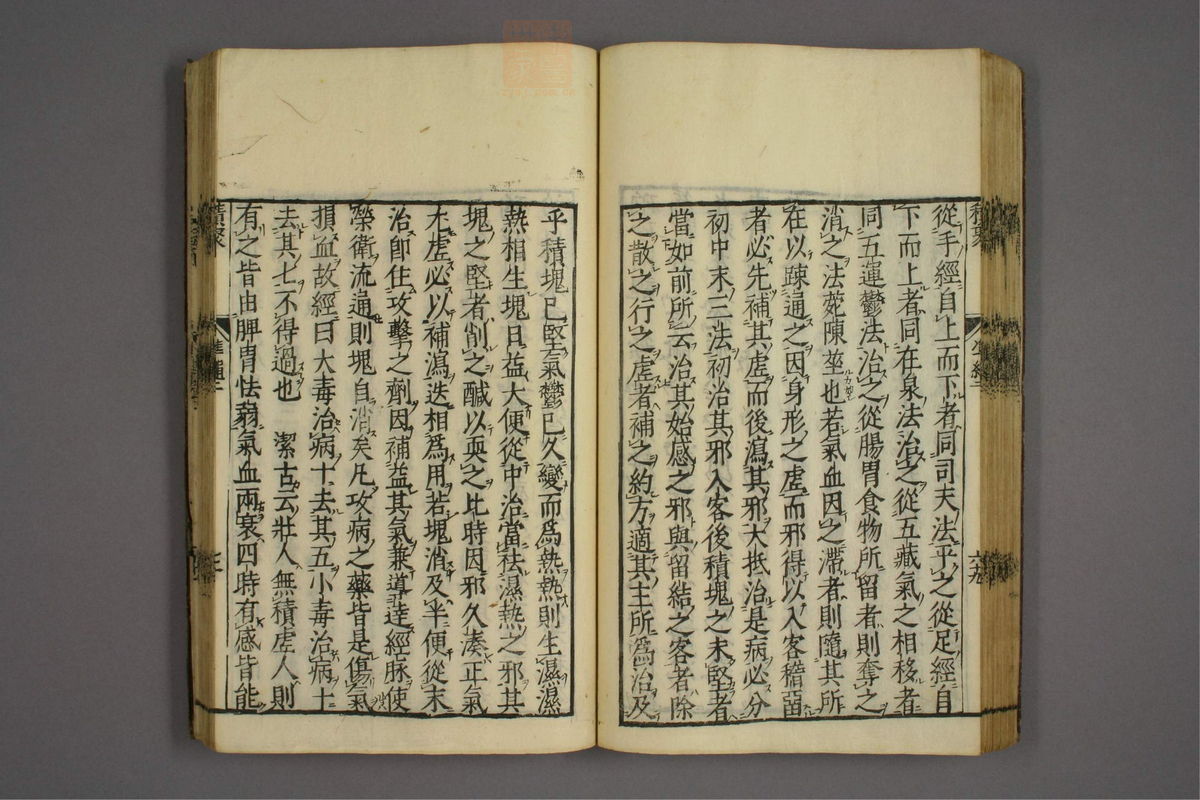 從手經自上而下者同司天法平之從足經自
下而上者同在泉法治之從五藏氣之相移者
同五運鬱法治之從腸胃食物所留者則奪之
消之法菀陳莝也若氣血因之滯者則隨其所
在以踈通之因身形之虛而邪得以入客稽留
者必先補其虛而後瀉其邪大抵治是病必分
初中末三法初治其邪入客後積塊之未堅者
當如前所云治其始感之邪與留結之客者除
之散之行之虛者補之約方適其主所爲治及
乎積塊已堅氣鬱已久變而爲熱熱則生濕濕
熱相生塊日益大便從中治當祛濕熱之邪其
塊之堅者削之醎以耎之比時因邪久湊正氣
尢虛必以補瀉迭相爲用若塊消及半便從末
治卽住攻擊之劑因補益其氣兼導達經脉使
榮衛流通則塊自消矣凡攻病之藥皆是傷氣
損血故經曰大毒治病十去其五小毒治病十
去其七不得過也　潔古云壯人無積虛人則
有之皆由脾胃怯弱氣血兩衰四時有感皆能